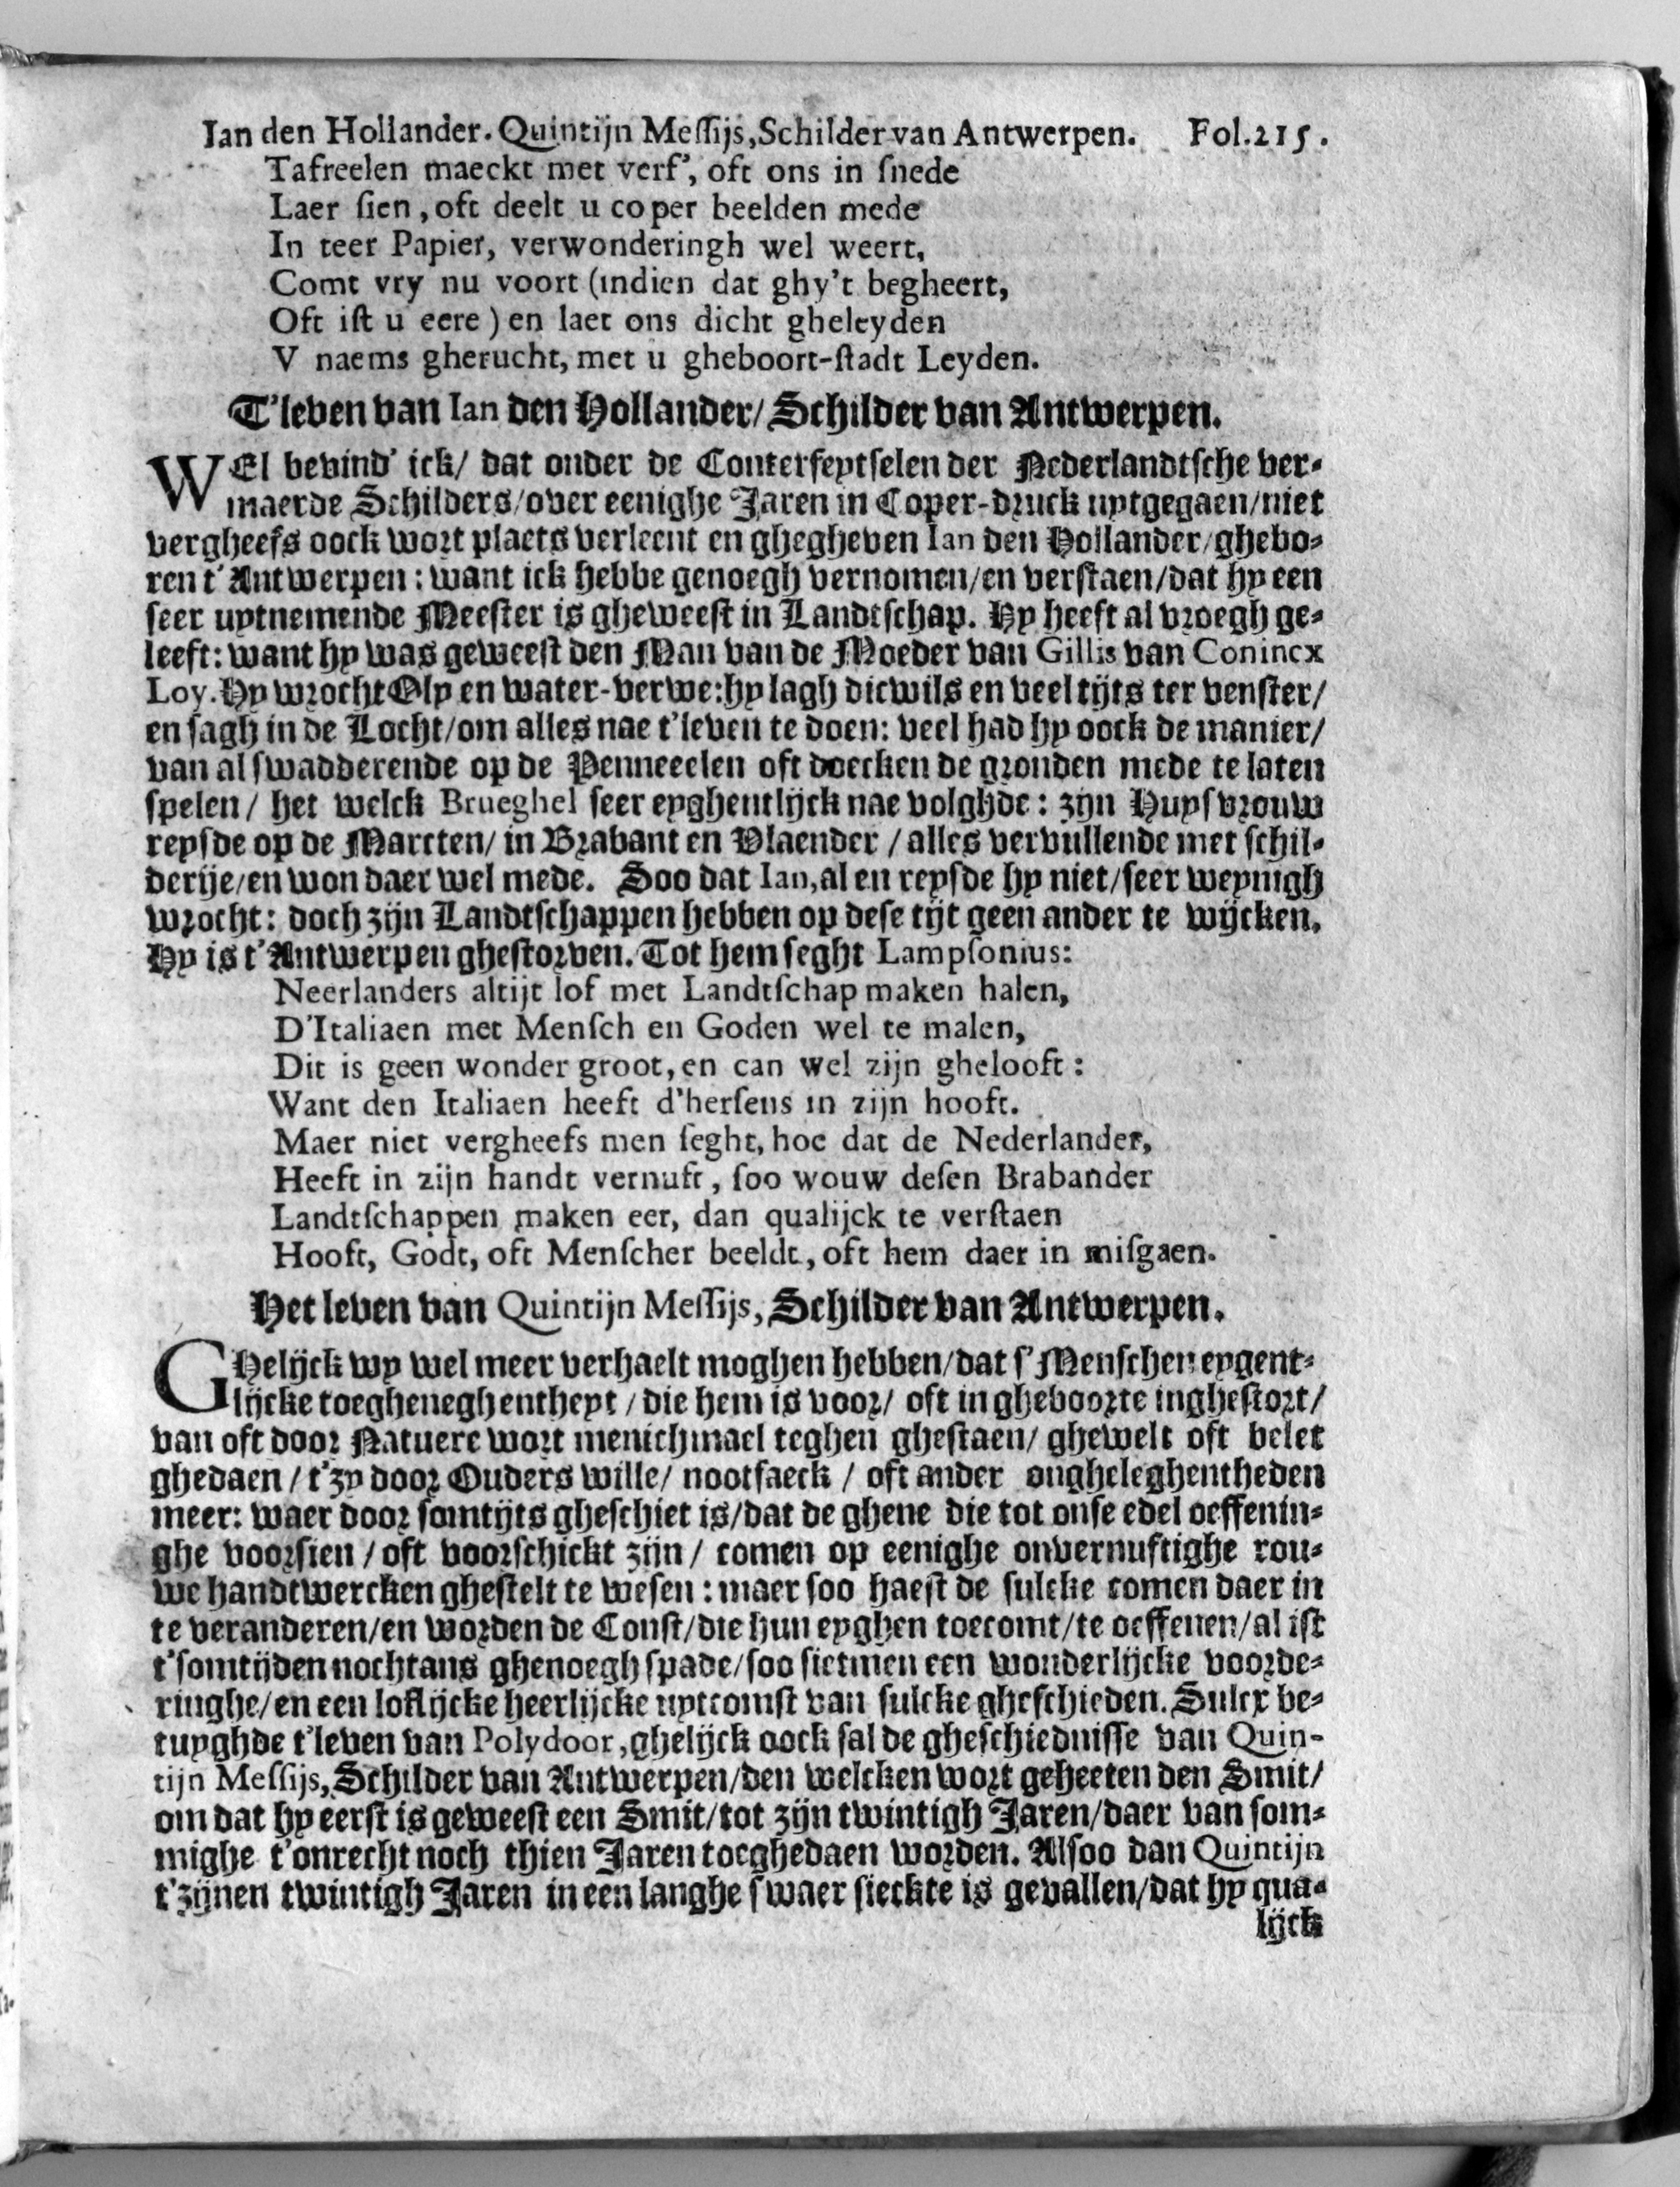 Ian den Hollander. Quintijn Meſſijs, Schilder van Antwerpen. Fol. 215.
Tafreelen maeckt met verf', oft ons in ſnede
Laer ſien, oft deelt u coper beelden mede
In teer Papier, verwonderingh wel weert,
Comt vry nu voort (indien dat ghy't begheert,
Oft iſt u eere) en laet ons dicht gheleyden
V naems gherucht, met u gheboort-ſtadt Leyden.
T'leven van Ian den Hollander/ Schilder van Antwerpen.
WEl bevind' ick/ dat onder de Conterfeytſelen der Nederlandtſche ver-
maerde Schilders/ over eenighe Jaren in Coper-druck uytgegaen/ niet
vergheefs oock wort plaets verleent en ghegheven Ian den Hollander/ ghebo-
ren t'Antwerpen: want ick hebbe genoegh vernomen/ en verſtaen/ dat hy een
ſeer uytnemende Meeſter is gheweeſt in Landtſchap. Hy heeft al vroegh ge-
leeft: want hy was geweeſt den Man van de Moeder van Gillis van Conincx
Loy. Hy wrocht Oly en water-verwe: hy lagh dicwils en veel tijts ter venſter/
en ſagh in de Locht/ om alles nae t'leven te doen: veel had hy oock de manier/
van al ſwadderende op de Penneelen oft doecken de gronden mede te laten
ſpelen/ het welck Brueghel ſeer eyghentlijck nae volghde: zijn Huyſvrouw
reyſde op de Marcten/ in Brabant en Vlaender/ alles vervullende met ſchil-
derije/ en won daer wel mede. Soo dat Ian, al en reyſde hy niet/ ſeer weynigh
wrocht: doch zijn Landtſchappen hebben op deſe tijt geen ander te wijcken.
Hy is t'Antwerpen gheſtorven. Tot hem ſeght Lampſonius:
Neerlanders altijt lof met Landtſchap maken halen,
D'Italiaen met Menſch en Goden wel te malen,
Dit is geen wonder groot, en can wel zijn ghelooft:
Want den Italiaen heeft d'herſens in zijn hooft.
Maer niet vergheefs men ſeght, hoe dat de Nederlander,
Heeft in zijn handt vernuft, ſoo wouw deſen Brabander
Landtſchappen maken eer, dan qualijck te verſtaen
Hooft, Godt, oft Menſcher beeldt, oft hem daer in miſgaen.
Het leven van Quintijn Meſſijs, Schilder van Antwerpen.
GHelijck wy wel meer verhaelt moghen hebben/ dat ſ'Menſchen eygent-
lijcke toegheneghentheyt/ die hem is voor/ oft in gheboorte ingheſtort/
van oft door Natuere wort menichmael teghen gheſtaen/ ghewelt oft belet
ghedaen/ t'zy door Ouders wille/ nootſaeck/ oft ander ongheleghentheden
meer: waer door ſomtijts gheſchiet is/ dat de ghene die tot onſe edel oeffenin-
ghe voorſien/ oft voorſchickt zijn/ comen op eenighe onvernuftighe rou-
we handtwercken gheſtelt te weſen: maer ſoo haeſt de ſulcke comen daer in
te veranderen/ en worden de Conſt/ die hun eyghen toecomt/ te oeffenen/ al iſt
t'ſomtijden nochtans ghenoegh ſpade/ ſoo ſietmen een wonderlijcke voorde-
ringhe/ en een loflijcke heerlijcke uytcomſt van ſulcke gheſchieden. Sulcx be-
tuyghde t'leven van Polydoor, ghelijck oock ſal de gheſchiedniſſe van Quin-
tijn Meſſijs, Schilder van Antwerpen/ den welcken wort geheeten den Smit/
om dat hy eerſt is geweeſt een Smit/ tot zijn twintigh Jaren/ daer van ſom-
mighe t'onrecht noch thien Jaren toeghedaen worden. Alſoo dan Quintijn
t'zijnen twintigh Jaren in een langhe ſwaer ſieckte is gevallen/ dat hy qua-
lijck